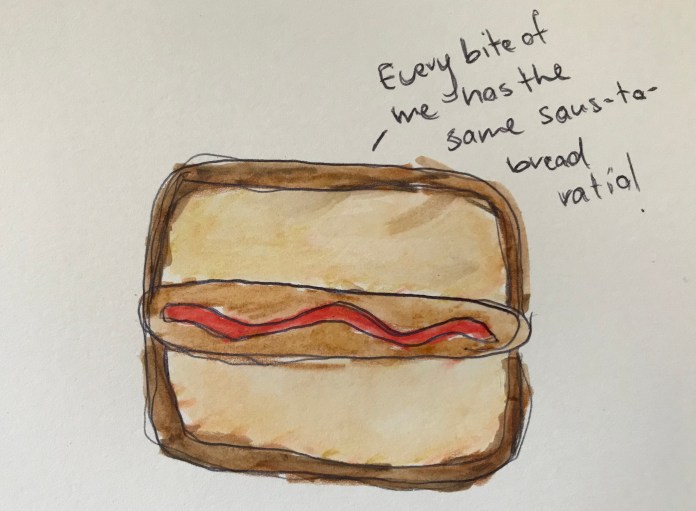 Every bite of
me has the
same saus-to-
bread
ratio!